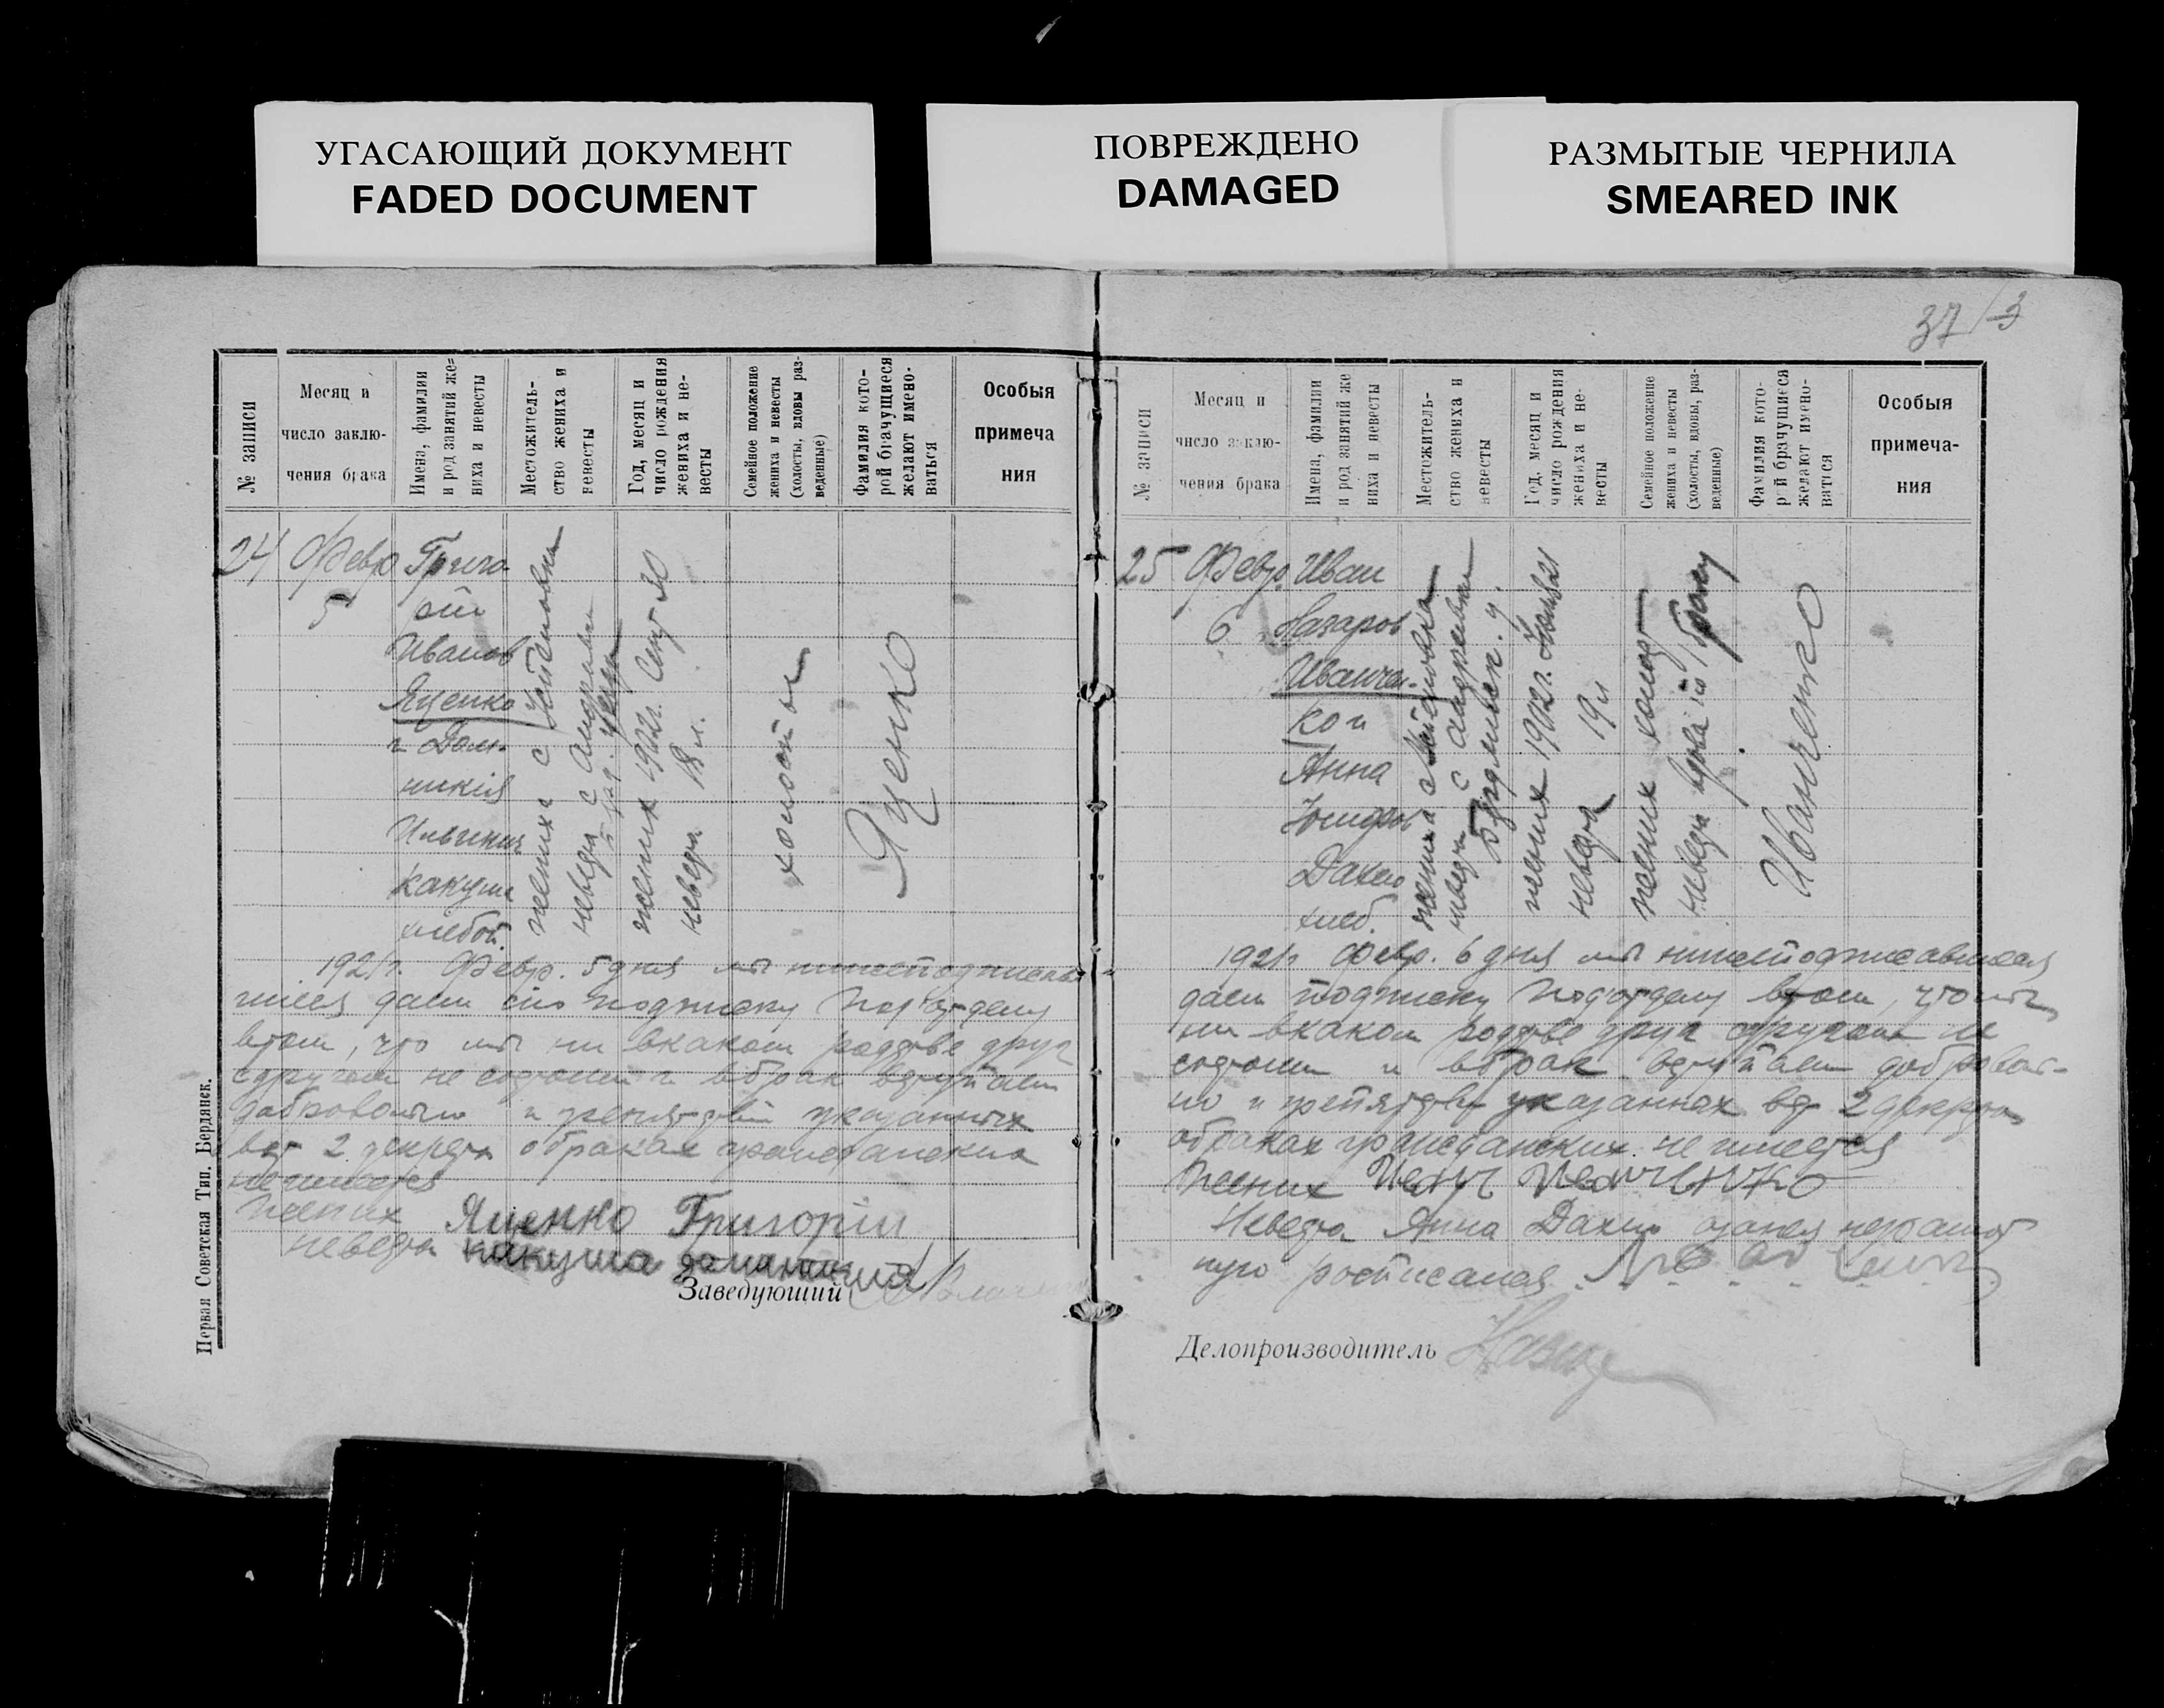 УГАСАЮЩИЙ ДОКУМЕНТ
FADED DOCUMENT
ПОВРЕЖДЕНО
DAMAGED
РАЗМЫТЫЕ ЧЕРНИЛА
SMEARED INK
37
3
№ записи
Месяц и
число заклю-
чения брака
Имена, фамилии
и род занятий же=
ниха и невесты
Местожитель-
ство жениха и
невесты
Год, месяц и
число рождения
жениха и не-
весты
Семейное положение
жениха и невесты
(холосты, вдовы раз-
веденные)
Фамилия кото-
рой брачущиеся
желают имено-
ваться
Особыя
примеча
ния
24
Февр
5
Григо
рій
Иванов
Яценко
и Дом-
никія
Какуша
хлебоп.
жених с
невеста с Андреевки
жених 1902г. Сент 30
невеста 18 л.
холосты
Яценко
1921г. Февр. 5 дня мы нижеподписав
шіеся даем сію подписку Подотделу
втом, что мы ни вкаком родстве друг
сдругом не состоим и вбрак вступаем
добровольно и препятствій указанных
вст 2 декрета обраках гражданских
не имеется
Жених Яценко Григорій
невеста Какуша
Заведующий
Первая Советская Тип. Бердянск.
№ записи
Месяц и
число заклю-
чения брака
Имена, фамилии
и род занятий же
ниха и невесты
Местожитель-
ство жениха и
невесты
Год, месяц и
число рождения
жениха и не-
весты
Семейное положение
жениха и невесты
(холосты, вдовы, раз-
веденные)
Фамилия кото-
рой брачущиеся
желают имено-
ваться
Особыя
примеча-
ния
25
Февр.
6
Иван
Назаров
Иванчен-
ко и
Анна
Дахно
хлеб.
жениха
невеста с Андреевки
Бердянск. у.
жених 1902г.
невеста 19 л
жених холост
невеста вдова по браку
Иванченко
1921г Февр. 6 дня мы нижеподписавшиеся
даем подписку Подотделу втом, что мы
ни вкаком родстве друг сдругом не
состоим и вбрак вступаем доброволь-
но и препятств указанных вст 2 декрета
обраках гражданских не имеется
Жених Иван Иванченко
Невеста Анна Дахно
расписался
Делопроизводитель